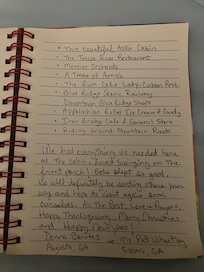 • This beautiful Aska Cabin
• The Toccoa River Restaurant
• Mercier Orchards
• A Taste of Amish
• The Rum Cake Lady, Cuban Rest.
• Blue Ridge Scenic Railway
Downtown Blue Ridge Shops
• Appalachian Rolled Ice Cream & Candy
• Iron Bridge Cafe & General Store
• Riding around Mountain Roads
We had everything we needed here
at the cabin. Loved swinging on the
front porch! Beds slept so good.
We will definitely be sending others your
way and hope to visit again som
ourselves. All The Best, Love & Prayers,
Happy Thanksgiving, Merry Christmas
and Happy New Year!
Donna &
Augusta, GA
Ms. Pat Wheatley
Evans, GA